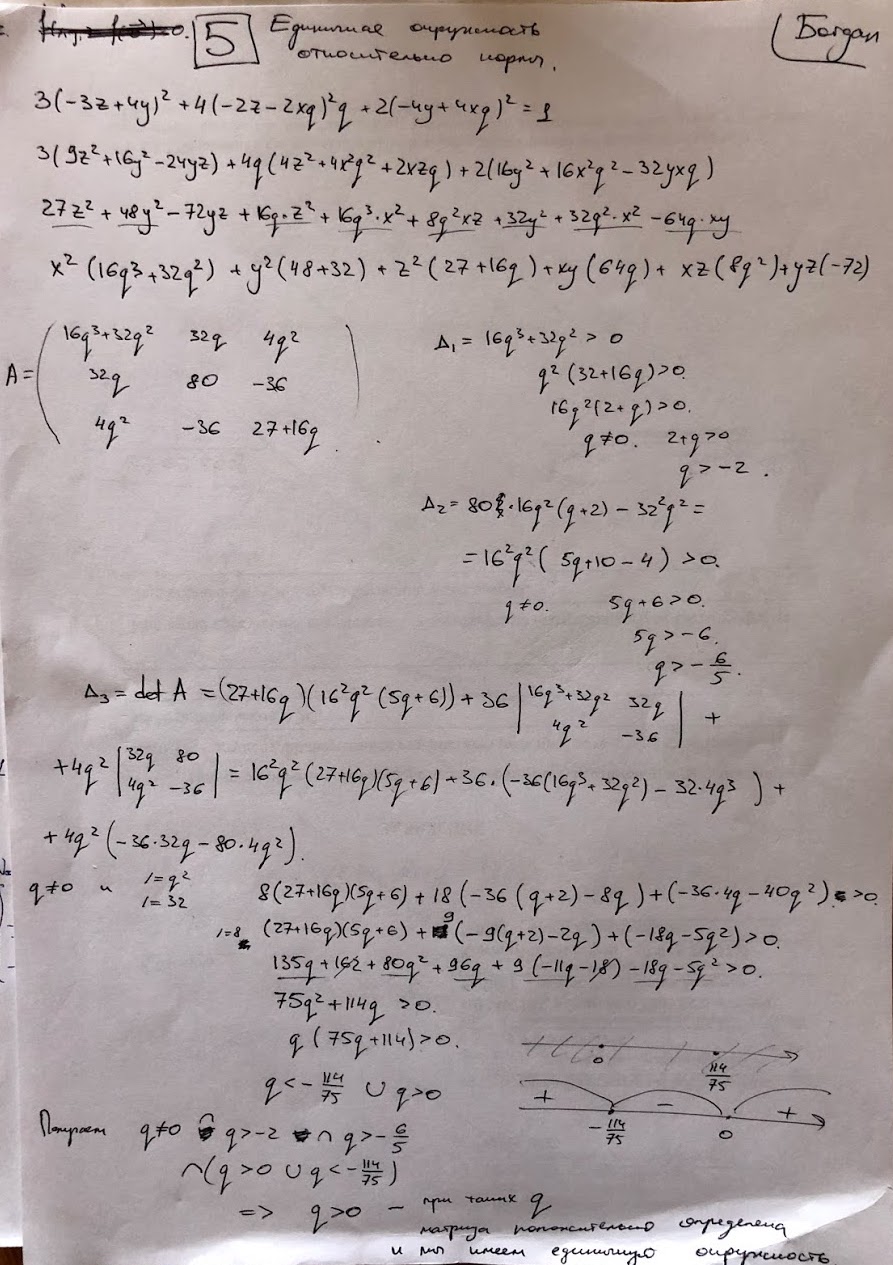 5 Единичная окружность
относительно нормы.
Богдан
3(-3z+4y)² + 4(-2z-2xq)²q + 2(-4y+4xq)² = 1
3(9z²+16y²-24yz) + 4q(4z²+4x²q²+2xzq) + 2(16y²+16x²q²-32yxq)
27z² + 48y² - 72yz + 16q·z² + 16q³·x² + 8q²xz + 32y² + 32q²·x² - 64q·xy
x²(16q³+32q²) + y²(48+32) + z²(27+16q) + xy(64q) + xz(8q²) + yz(-72)
A = ( 16q³+32q² 32q 4q²
32q 80 -36
4q² -36 27+16q )
Δ₁ = 16q³+32q² > 0
q²(32+16q)>0.
16q²(2+q)>0.
q≠0. 2+q>0
q>-2.
Δ₂ = 80·16q²(q+2) - 32²q² =
= 16²q²(5q+10-4) > 0.
q≠0. 5q+6>0.
5q>-6.
q>-6/5.
Δ₃ = det A = (27+16q)(16²q²(5q+6)) + 36 | 16q³+32q² 32q
4q² -36 | +
+4q² | 32q 80
4q² -36 | = 16²q²(27+16q)(5q+6) + 36·(-36(16q³+32q²) - 32·4q³) +
+ 4q²(-36·32q - 80·4q²).
q≠0 и /=q²
/=32
8(27+16q)(5q+6) + 18(-36(q+2)-8q) + (-36·4q-40q²) >0.
/=8 (27+16q)(5q+6) + 9(-9(q+2)-2q) + (-18q-5q²)>0.
135q+162+80q²+96q+9(-11q-18)-18q-5q²>0.
75q²+114q>0.
q(75q+114)>0.
q<-114/75 ∪ q>0
0 114/75
+ - +
-114/75 0
Получаем q≠0 ∩ q>-2 ∩ q>-6/5
∩(q>0 ∪ q<-114/75)
=> q>0 - при таких q
матрица положительно определена
и мы имеем единичную окружность